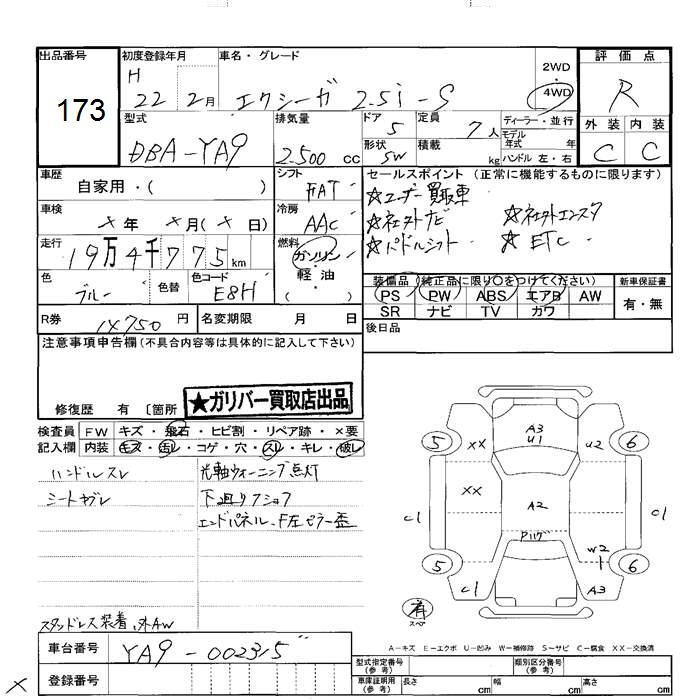 出品番号
173
初度登録年月
H 22 2月
車名・グレード
エクシーガ 2.5i-S
2WD
4WD
評価点
R
外装 内装
C C
型式
DBA-YA9
排気量
2.500 cc
ドア 5
形状 SW
定員 7人
積載 kg
ディーラー・並行
モデル年式 年式
ハンドル 左・右
車歴
自家用・( )
シフト
FAT
車検
×年 ×月(×日)
冷房
AAC
走行
19万4千775km
燃料
ガソリン
軽油
( )
色
ブルー
色替
色コード
E8H
R券
14750円
名変期限 月 日
セールスポイント (正常に機能するものに限ります)
☆ユーザー買取車
☆社外ナビ ☆社外エンスタ
☆パドルシフト ☆ETC
装備品 (純正品に限り○をつけてください)
PS PW ABS エアB AW
SR ナビ TV カワ
新車保証書
有・無
後日品
注意事項申告欄(不具合内容等は具体的に記入して下さい)
修復歴 有 〔箇所
★ガリバー買取店出品
検査員 記入欄
FW キズ・飛石・ヒビ割・リペア跡・×要
内装 キズ・汚レ・コゲ・穴・スレ・キレ・破レ
ハンドルスレ
シートヤブレ
光軸ウォーニング点灯
下廻りフショク
エンドパネル、F左ピラー歪
スタッドレス装着、外AW
車台番号
YA9-002315
登録番号
×
A3
U1
XX
U2
5
6
XX
A2
C1
C1
Pハゲ
W2
1
5
6
C1
A3
有
スペア
A-キズ E-エクボ U-凹み W-補修跡 S-サビ C-腐食 XX-交換済
型式指定番号(参考)
類別区分番号(参考)
車庫証明用(参考)
長さ cm
幅 cm
高さ cm